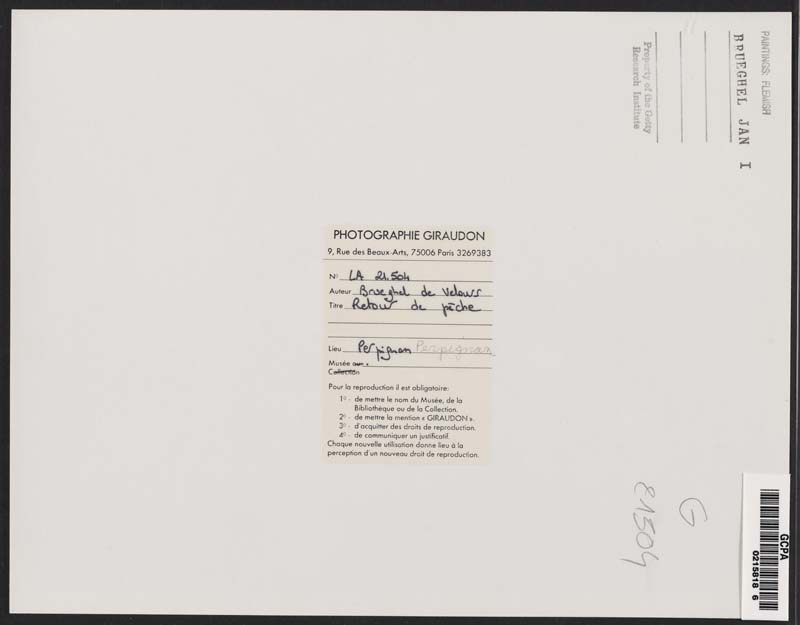 PAINTINGS: FLEMISH
BRUEGHEL JAN I
Property of the Getty
Research Institute
PHOTOGRAPHIE GIRAUDON
9, Rue des Beaux-Arts, 75006 Paris 3269383
No LA 21.504
Auteur Brueghel de Velours
Titre Retour de pêche
Lieu Perpignan Perpignan
Musée ou
Collection
Pour la reproduction il est obligatoire:
1o - de mettre le nom du Musée, de la
Bibliothèque ou de la Collection.
2o - de mettre la mention « GIRAUDON ».
3o - d'acquitter des droits de reproduction.
4o - de communiquer un justificatif.
Chaque nouvelle utilisation donne lieu à la
perception d'un nouveau droit de reproduction.
G
21504
GCPA
0215818 6